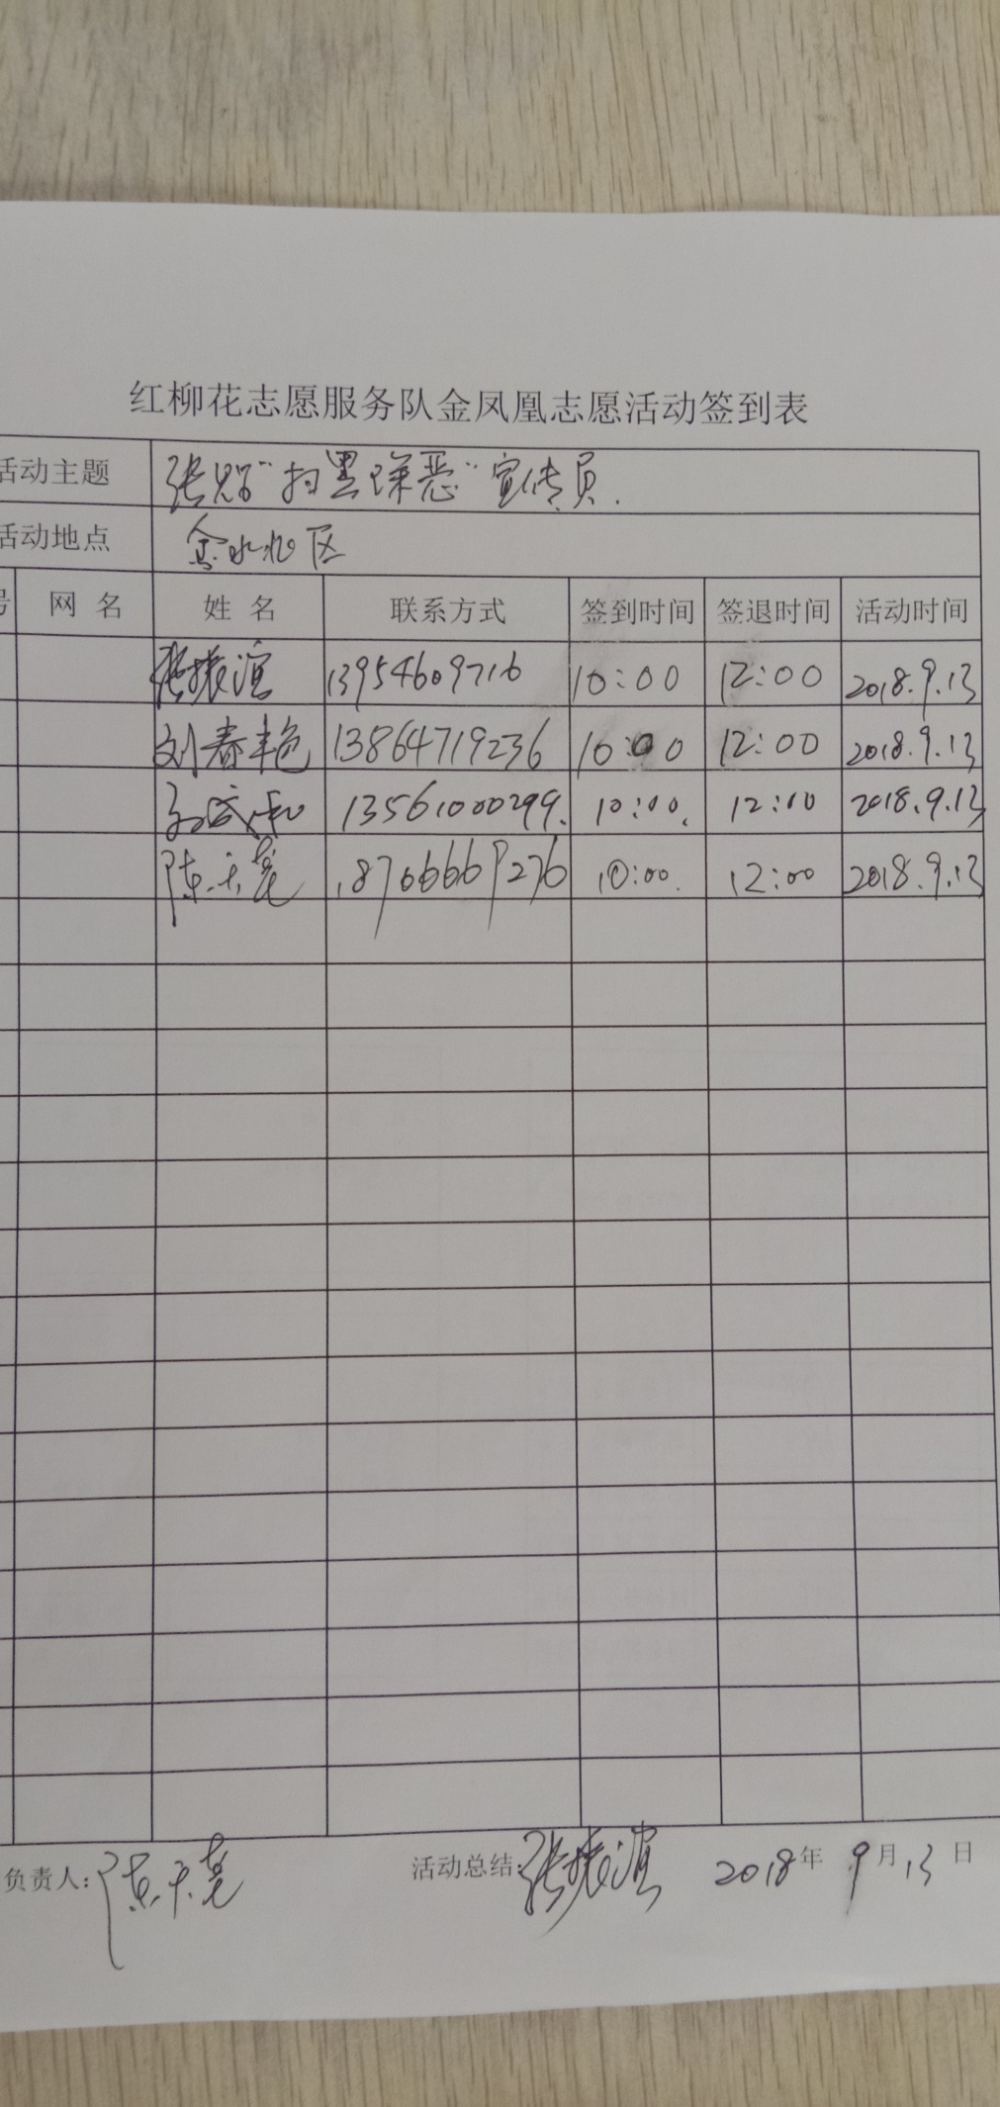 红柳花志愿服务队金凤凰志愿活动签到表
活动主题 张贴“扫黑除恶”宣传员.
活动地点 金水北区
号 网 名 姓 名 联系方式 签到时间 签退时间 活动时间
张振滨 13954609716 10:00 12:00 2018.9.13
刘春艳 13864719236 10:00 12:00 2018.9.13
13561000299. 10:00. 12:00 2018.9.13
陈天亮 18766669276 10:00. 12:00 2018.9.13
负责人: 陈天亮 活动总结: 张振滨 2018年 9月13日